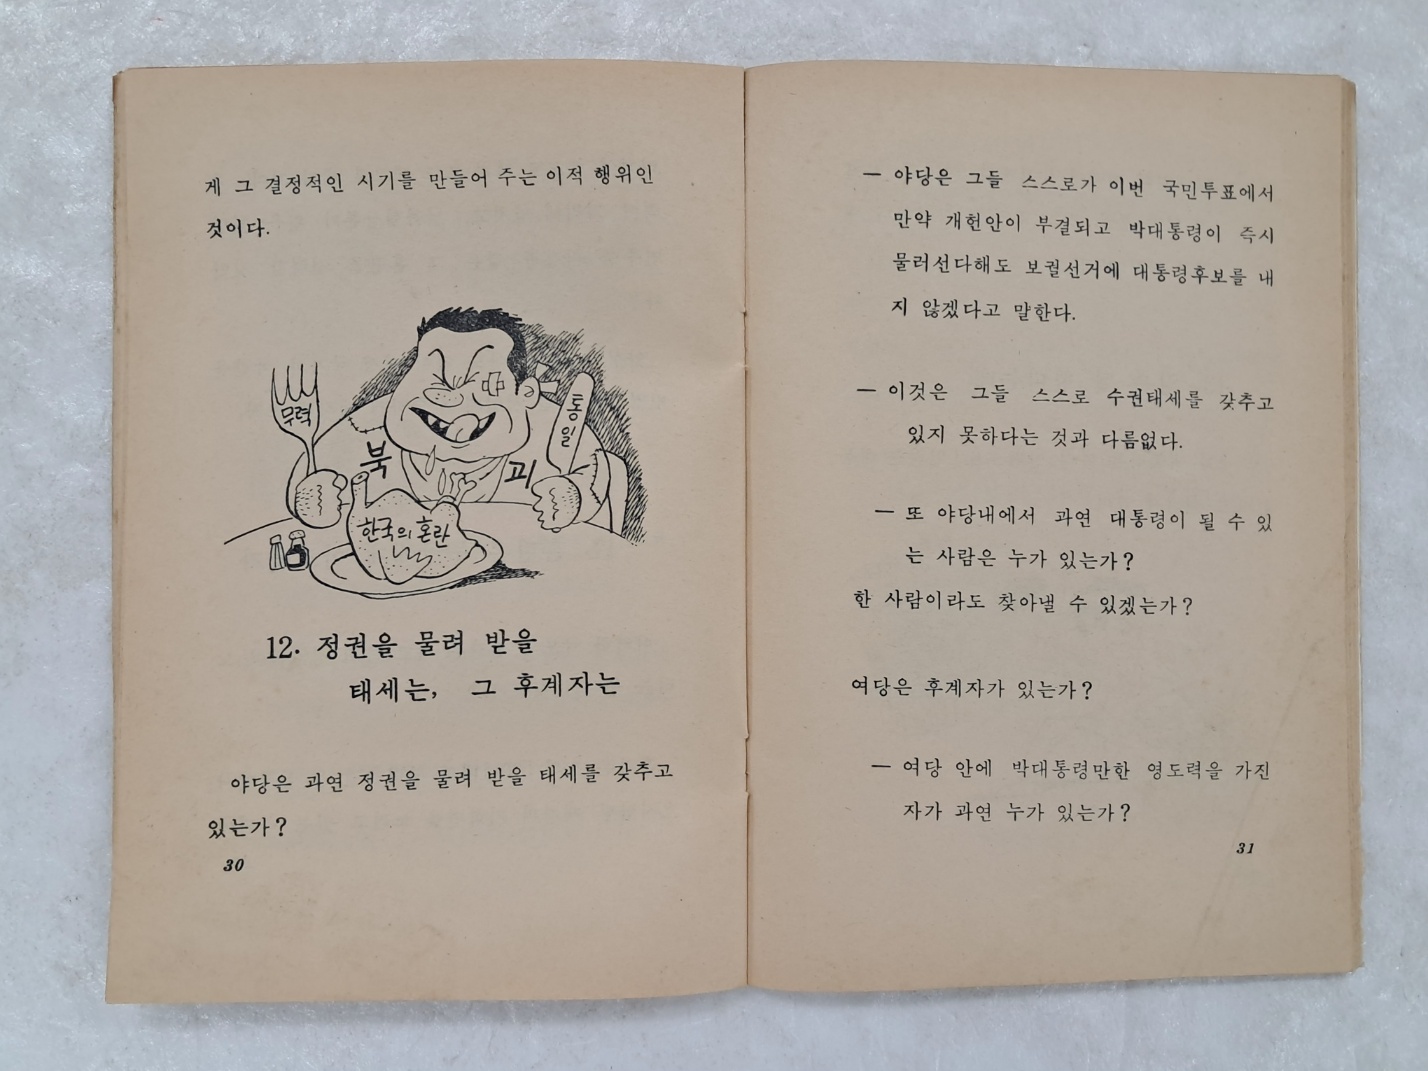 게 그 결정적인 시기를 만들어 주는 이적 행위인
것이다.
무력
통일
북괴
한국의 혼란
12. 정권을 물려 받을
태세는, 그 후계자는
야당은 과연 정권을 물려 받을 태세를 갖추고
있는가?
30
— 야당은 그들 스스로가 이번 국민투표에서
만약 개헌안이 부결되고 박대통령이 즉시
물러선다해도 보궐선거에 대통령후보를 내
지 않겠다고 말한다.
— 이것은 그들 스스로 수권태세를 갖추고
있지 못하다는 것과 다름없다.
— 또 야당내에서 과연 대통령이 될 수 있
는 사람은 누가 있는가?
한 사람이라도 찾아낼 수 있겠는가?
여당은 후계자가 있는가?
— 여당 안에 박대통령만한 영도력을 가진
자가 과연 누가 있는가?
31